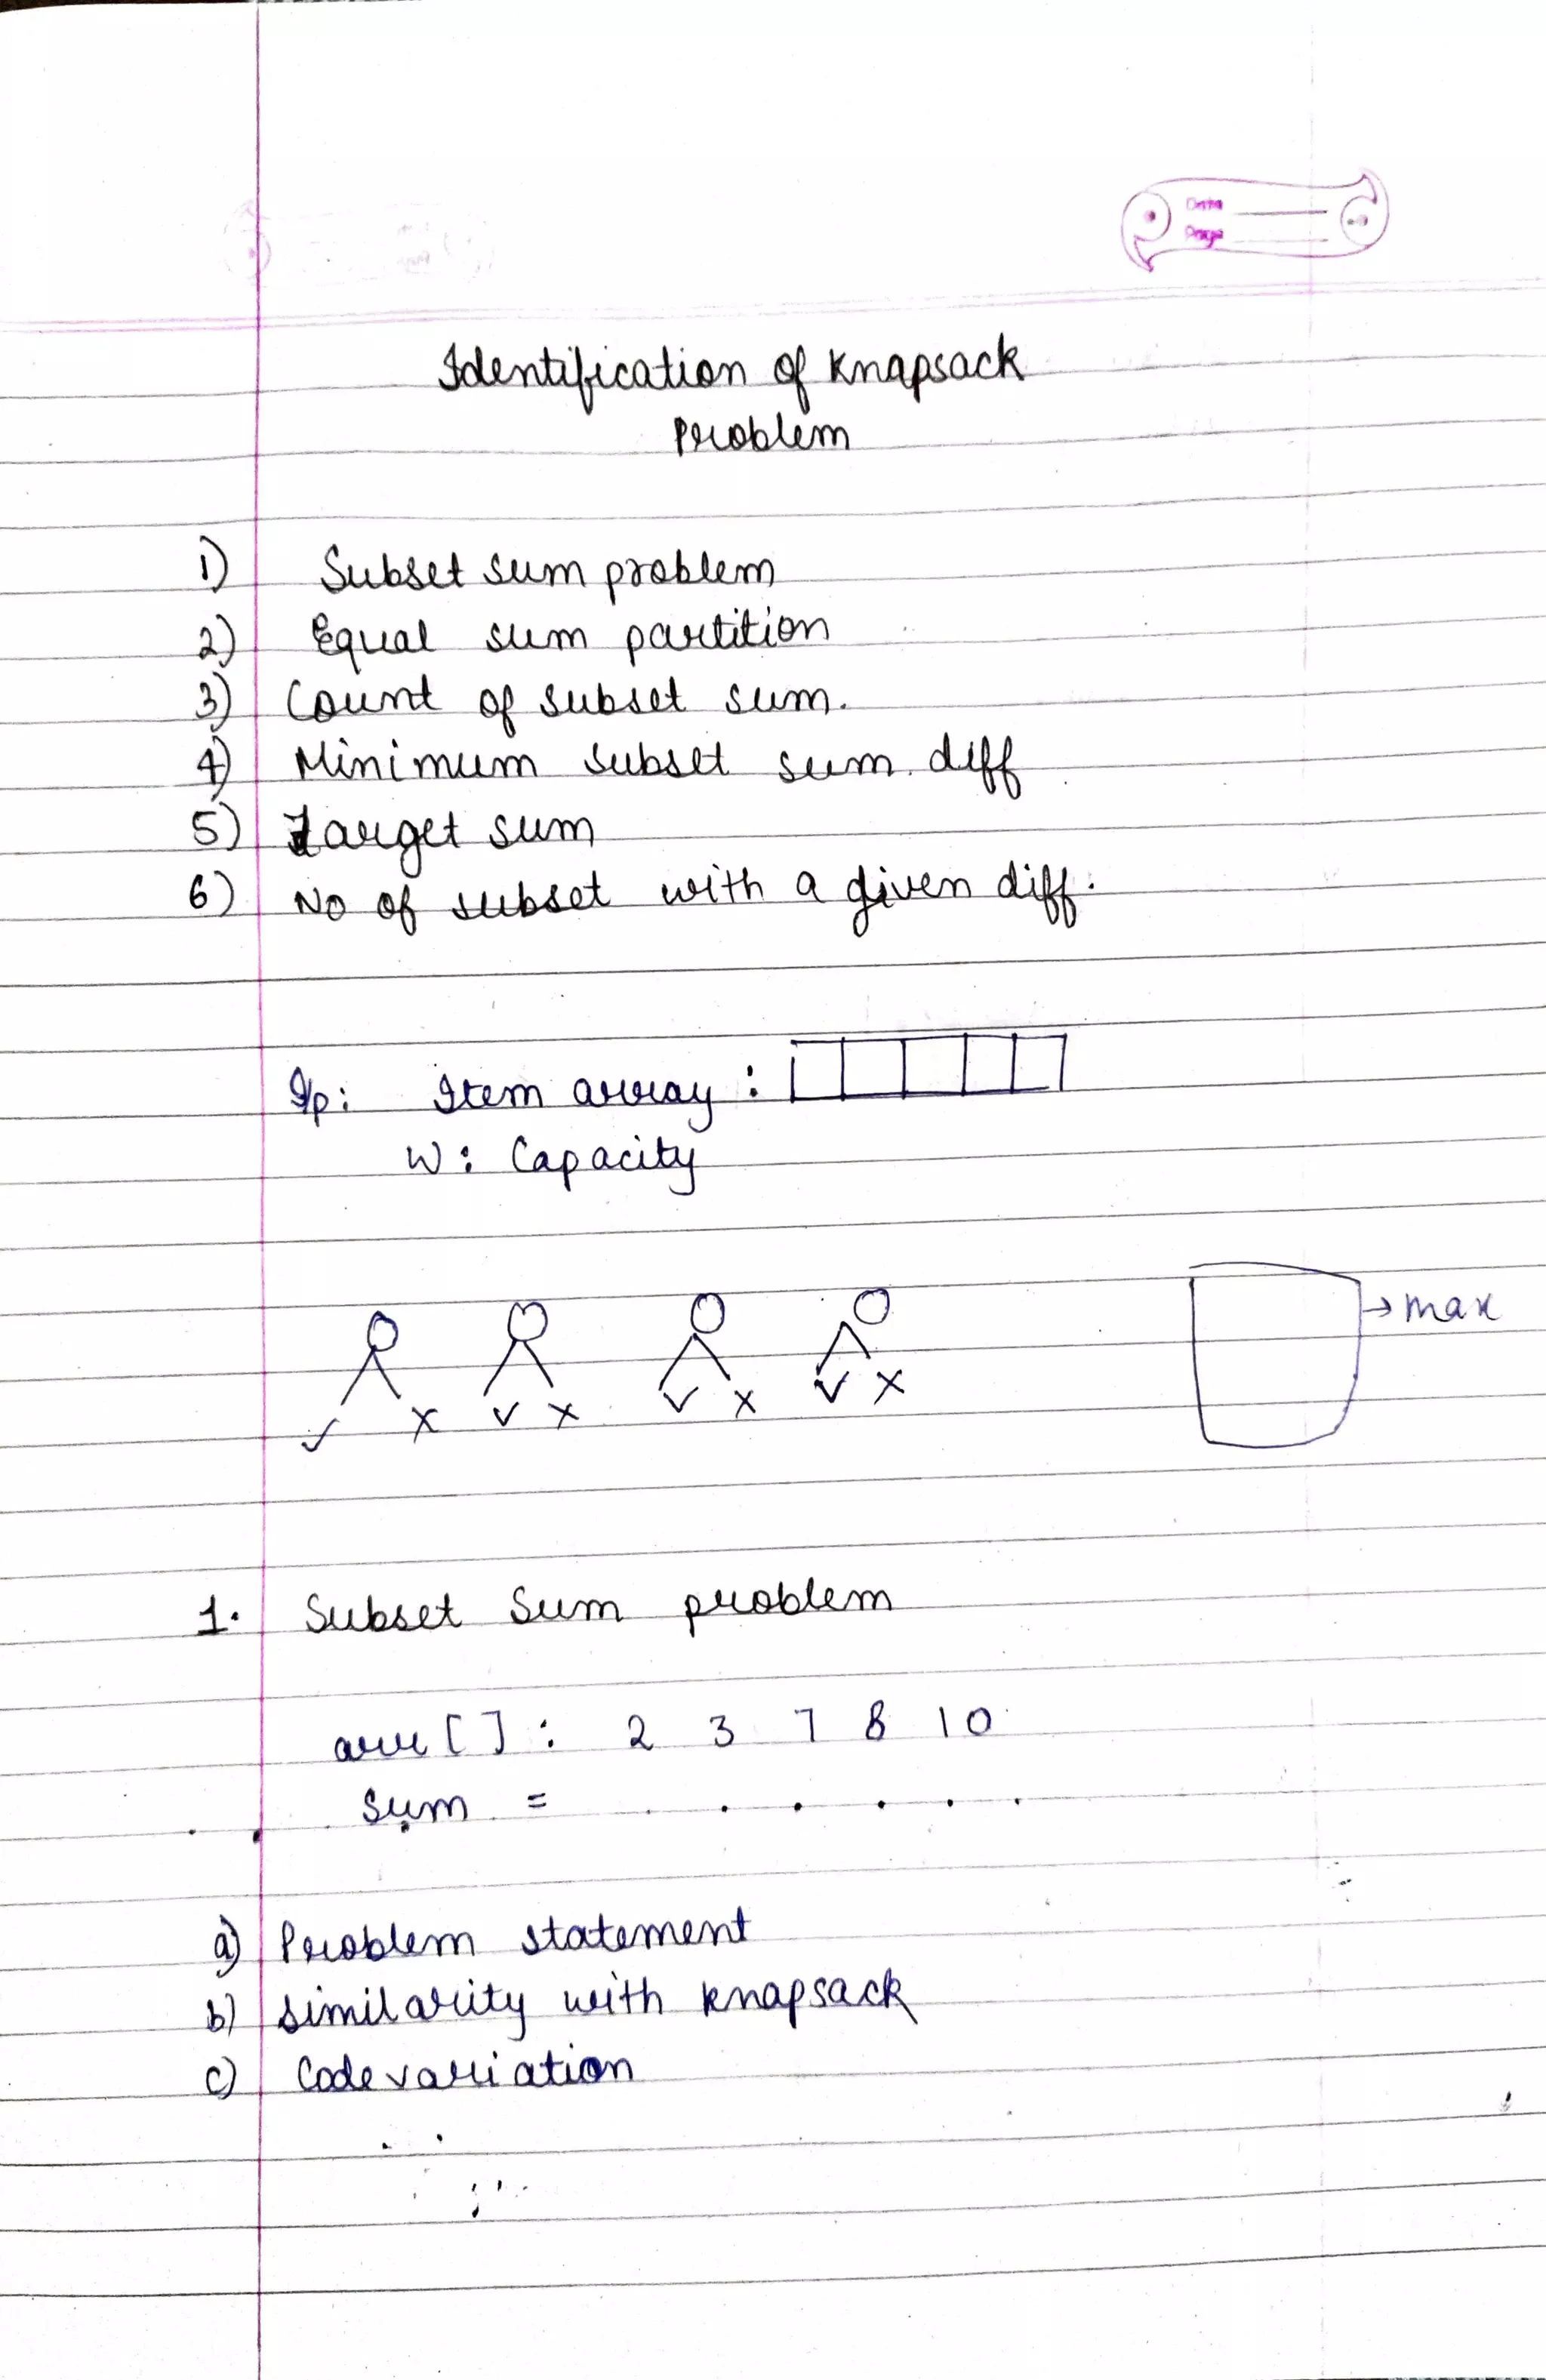 Date
Page
Identification of Knapsack
Problem
1) Subset sum problem
2) Equal sum partition
3) Count of subset sum.
4) Minimum subset sum diff
5) Target sum
6) No of subset with a given diff.
I/p: Item array :
W : Capacity
→ max
✓ x ✓ x ✓ x ✓ x
1. Subset Sum problem
arr [ ] : 2 3 7 8 10
Sum =
a) Problem statement
b) Similarity with knapsack
c) Code variation